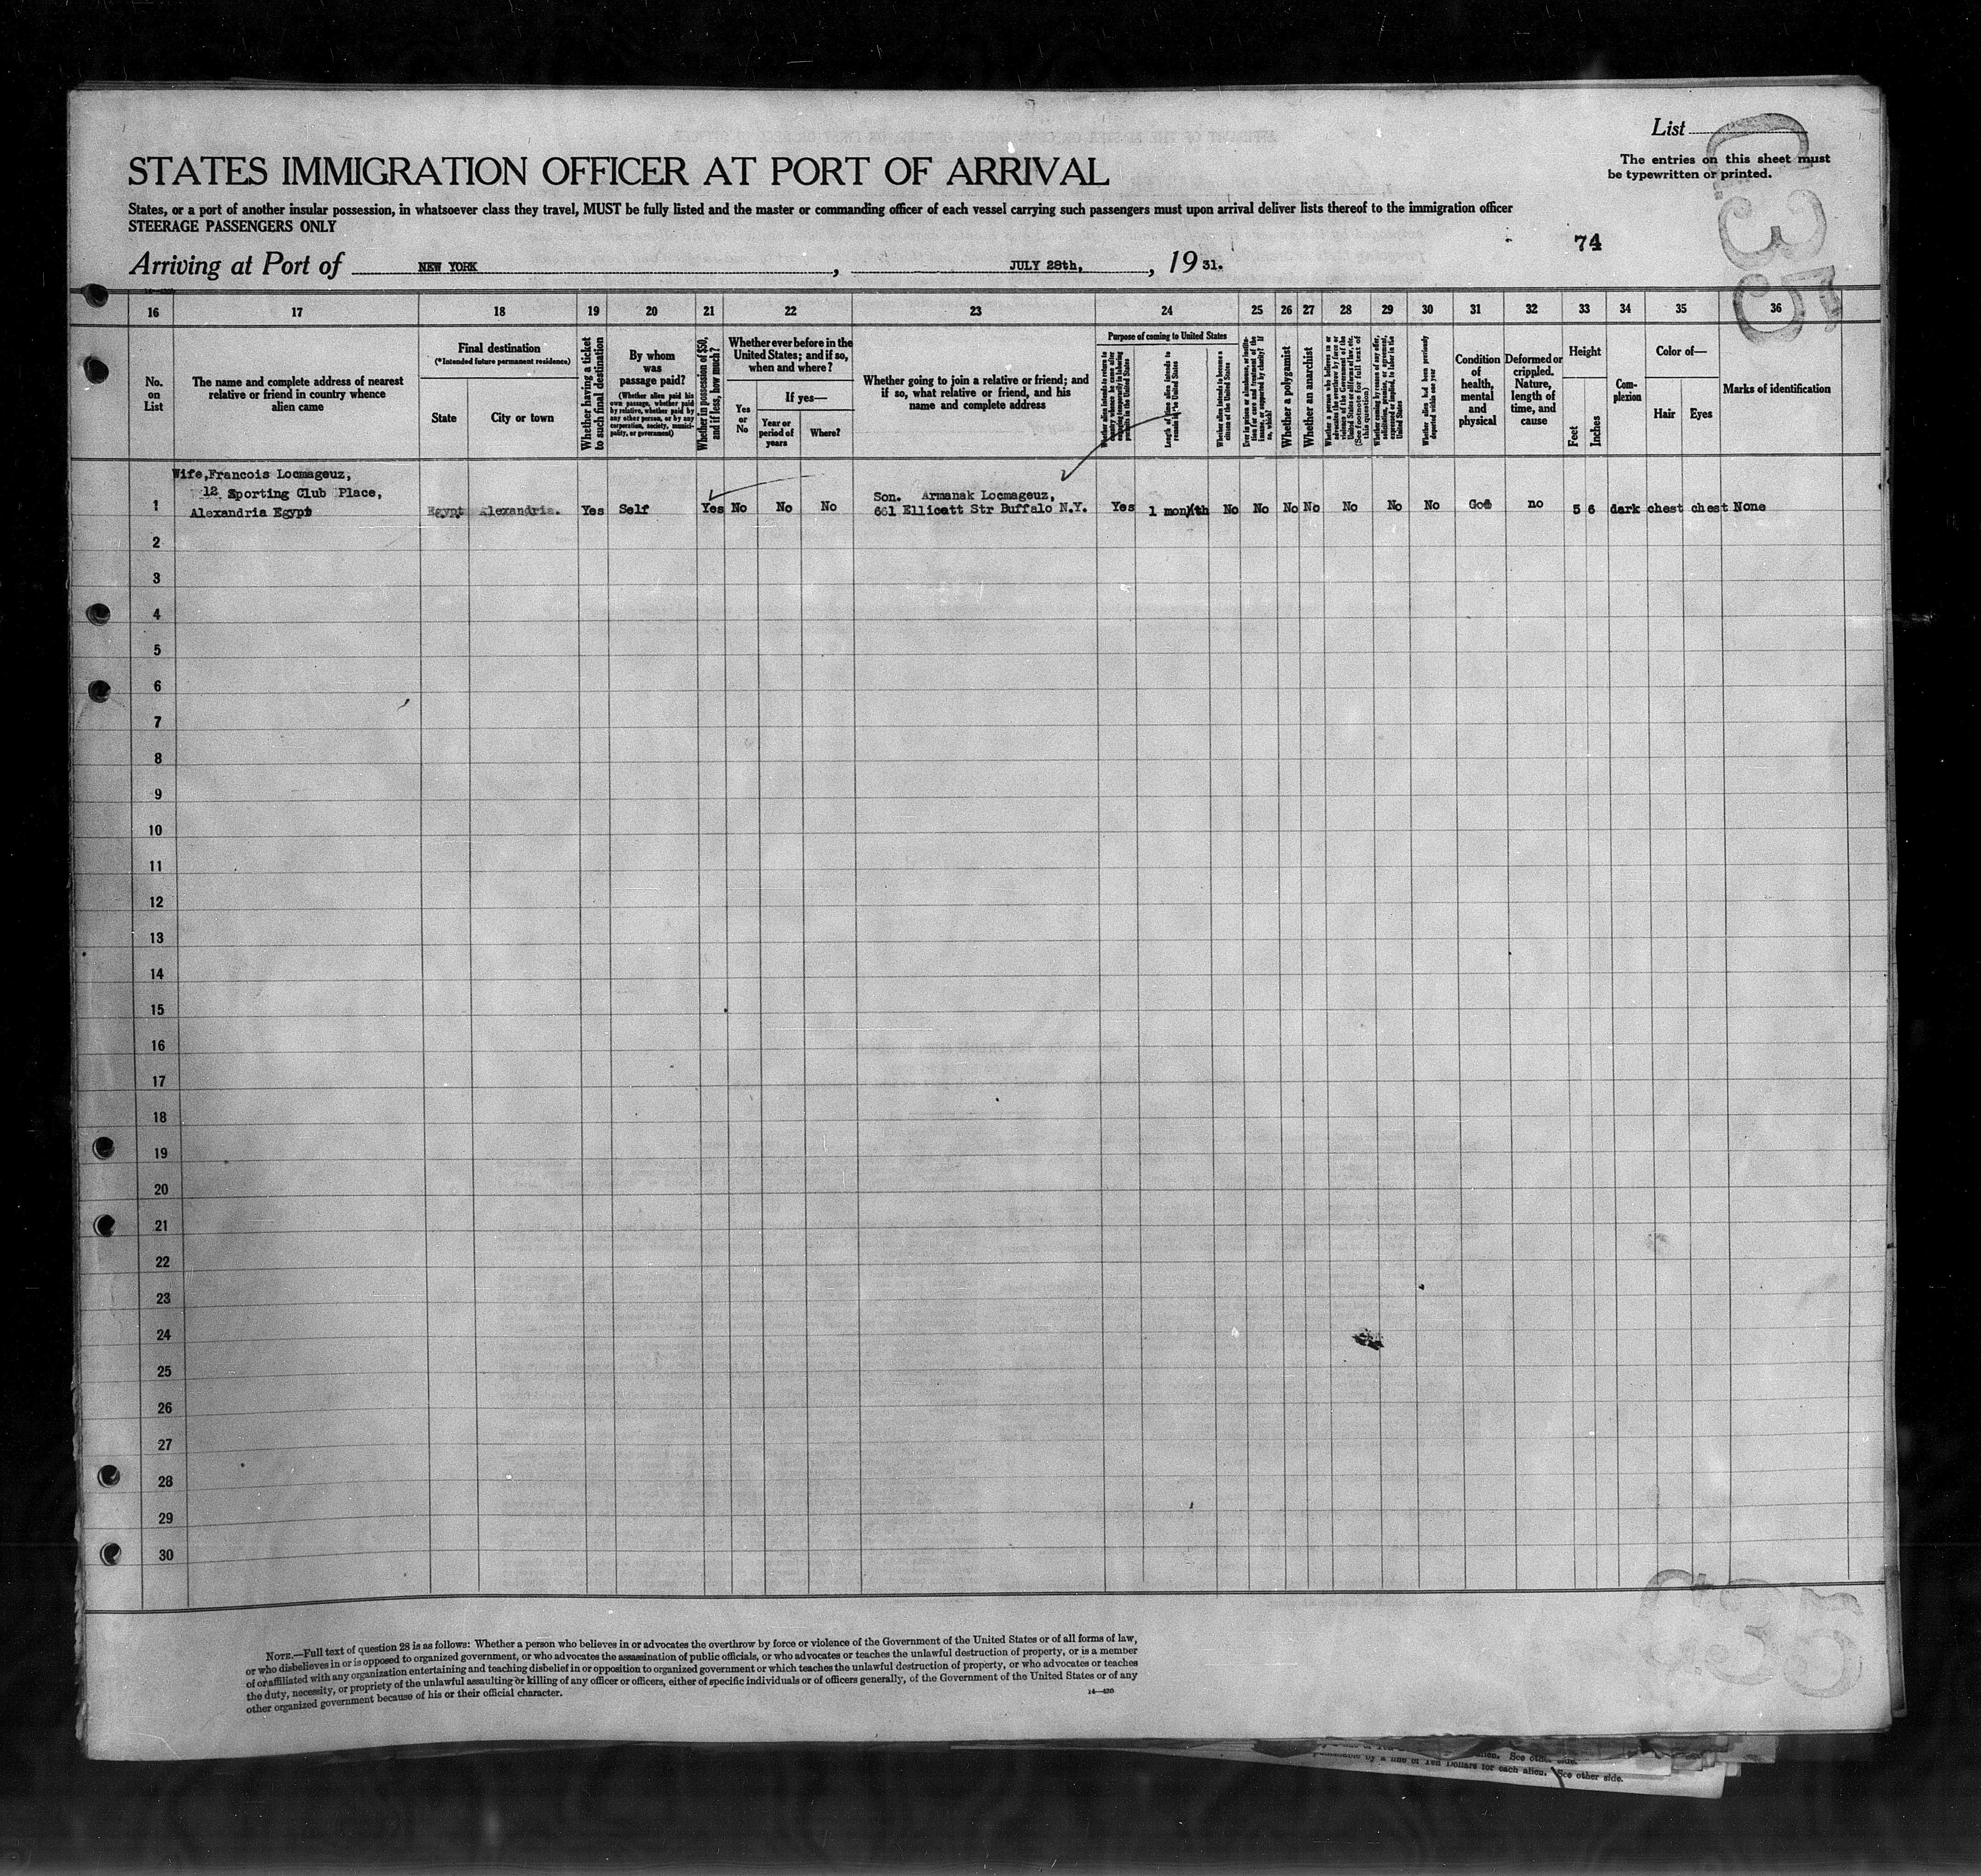 List
The entries on this sheet must
be typewritten or printed.
STATES IMMIGRATION OFFICER AT PORT OF ARRIVAL
States, or a port of another insular possession, in whatsoever class they travel, MUST be fully listed and the master or commanding officer of each vessel carrying such passengers must upon arrival deliver lists thereof to the immigration officer
STEERAGE PASSENGERS ONLY
74
Arriving at Port of NEW YORK, JULY 28th, 1931.
16 17 18 19 20 21 22 23 24 25 26 27 28 29 30 31 32 33 34 35 36
No.
on
List
The name and complete address of nearest
relative or friend in country whence
alien came
Final destination
(*Intended future permanent residence)
State
City or town
Whether having a ticket
to such final destination
By whom
was
passage paid?
(Whether alien paid his
own passage, whether paid
by relative, whether paid by
any other person, or by any
corporation, society, munici-
pality, or government)
Whether in possession of $50,
and if less, how much?
Whether ever before in the
United States; and if so,
when and where?
Yes
or
No
If yes—
Year or
period of
years
Where?
Whether going to join a relative or friend; and
if so, what relative or friend, and his
name and complete address
Purpose of coming to United States
Whether alien intends to return to
country whence he came after
engaging temporarily in laboring
pursuits in the United States
Length of time alien intends to
remain in the United States
Whether alien intends to become a
citizen of the United States
Ever in prison or almshouse, or institu-
tion for care and treatment of the
insane, or supported by charity? If
so, which?
Whether a polygamist
Whether an anarchist
Whether a person who believes in or
advocates the overthrow by force or
violence of the Government of the
United States or all forms of law, etc.
(See footnote for full text of
this question)
Whether coming by reason of any offer,
solicitation, promise, or agreement,
expressed or implied, to labor in the
United States
Whether alien had been previously
deported within one year
Condition
of
health,
mental
and
physical
Deformed or
crippled.
Nature,
length of
time, and
cause
Height
Feet
Inches
Com-
plexion
Color of—
Hair
Eyes
Marks of identification
Wife,Francois Locmageuz,
12 Sporting Club Place,
Alexandria Egypt
1 Egypt Alexandria. Yes Self Yes No No No
Son. Armanak Locmageuz,
661 Ellicatt Str Buffalo N.Y.
Yes 1 month No No No No No No No no 5 6 dark chest chest None
2
3
4
5
6
7
8
9
10
11
12
13
14
15
16
17
18
19
20
21
22
23
24
25
26
27
28
29
30
NOTE.—Full text of question 28 is as follows: Whether a person who believes in or advocates the overthrow by force or violence of the Government of the United States or of all forms of law,
or who disbelieves in or is opposed to organized government, or who advocates the assassination of public officials, or who advocates or teaches the unlawful destruction of property, or is a member
of or affiliated with any organization entertaining and teaching disbelief in or opposition to organized government or which teaches the unlawful destruction of property, or who advocates or teaches
the duty, necessity, or propriety of the unlawful assaulting or killing of any officer or officers, either of specific individuals or of officers generally, of the Government of the United States or of any
other organized government because of his or their official character.
14—430
by a fine of Ten Dollars for each alien. See other side.